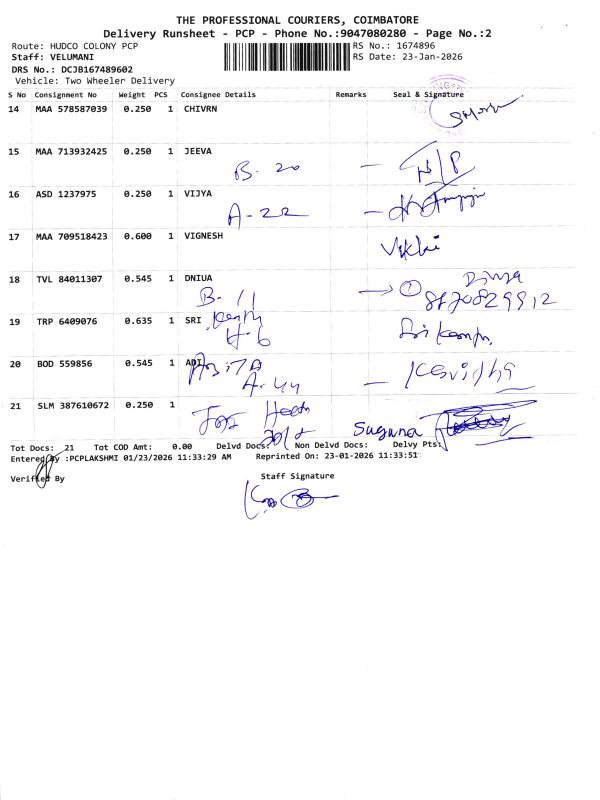 THE PROFESSIONAL COURIERS, COIMBATORE
Delivery Runsheet - PCP - Phone No.:9047080280 - Page No.:2
Route: HUDCO COLONY PCP RS No.: 1674896
Staff: VELUMANI RS Date: 23-Jan-2026
DRS No.: DCJB167489602
Vehicle: Two Wheeler Delivery
S No Consignment No Weight PCS Consignee Details Remarks Seal & Signature
14 MAA 578587039 0.250 1 CHIVRN
15 MAA 713932425 0.250 1 JEEVA
B. 20 -
16 ASD 1237975 0.250 1 VIJYA
A-22 -
17 MAA 709518423 0.600 1 VIGNESH
Vikki
18 TVL 84011307 0.545 1 DNIUA
B-11
8670829912
19 TRP 6409076 0.635 1 SRI
H-6
20 BOD 559856 0.545 1 ADI
A-44 - Kavidha
21 SLM 387610672 0.250 1
Suguna
Tot Docs: 21 Tot COD Amt: 0.00 Delvd Docs: Non Delvd Docs: Delvy Pts:
Entered By :PCPLAKSHMI 01/23/2026 11:33:29 AM Reprinted On: 23-01-2026 11:33:51
Verified By Staff Signature